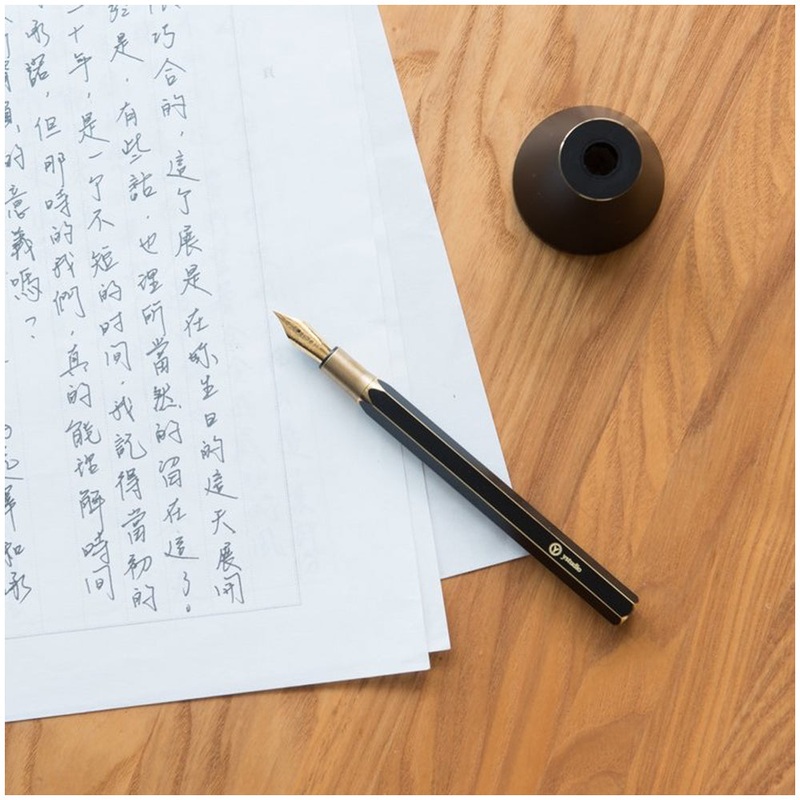 巧合的，這个展是在妳生日的這天展開
是，有些話，也理所當然的留在這了。
二十年，是一个不短的时间，我記得當初的
諾，但那時的我們，真的能理解時間
的意義嗎？
解和永
ystudio